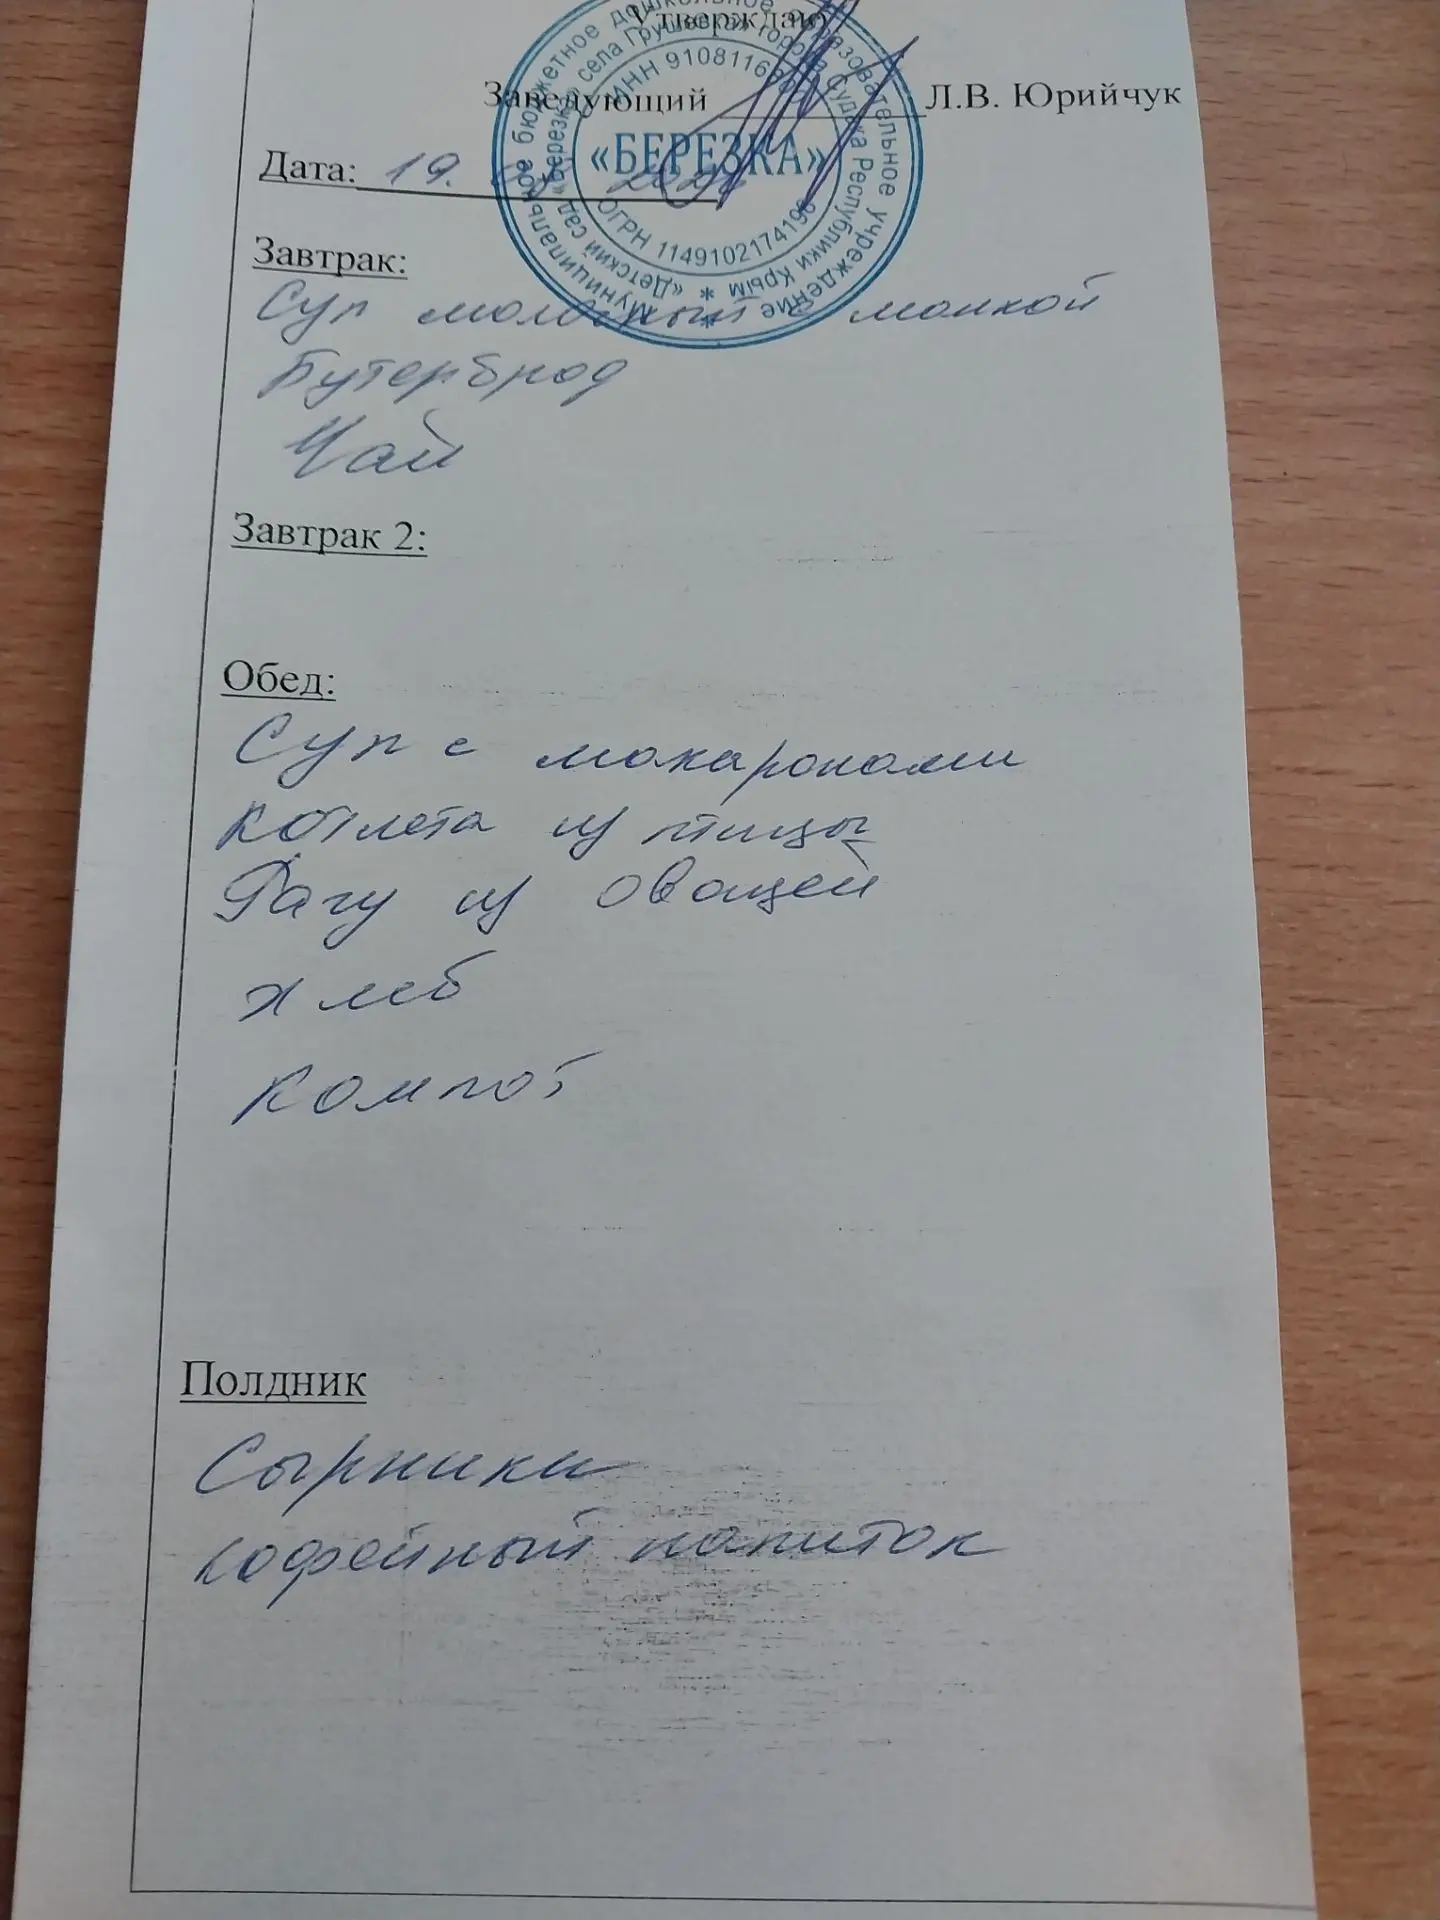 Утверждаю
Заведующий Л.В. Юрийчук
Муниципальное бюджетное дошкольное образовательное учреждение
«Детский сад «Березка» села Грушевка города Судака Республики Крым
ИНН 9108116
«БЕРЕЗКА»
ОГРН 1149102174196
Дата: 19.
Завтрак:
Суп молочный с манкой
Бутерброд
Чай
Завтрак 2:
Обед:
Суп с макаронами
Котлета из птицы
Рагу из овощей
Хлеб
Компот
Полдник
Сырники
кофейный напиток